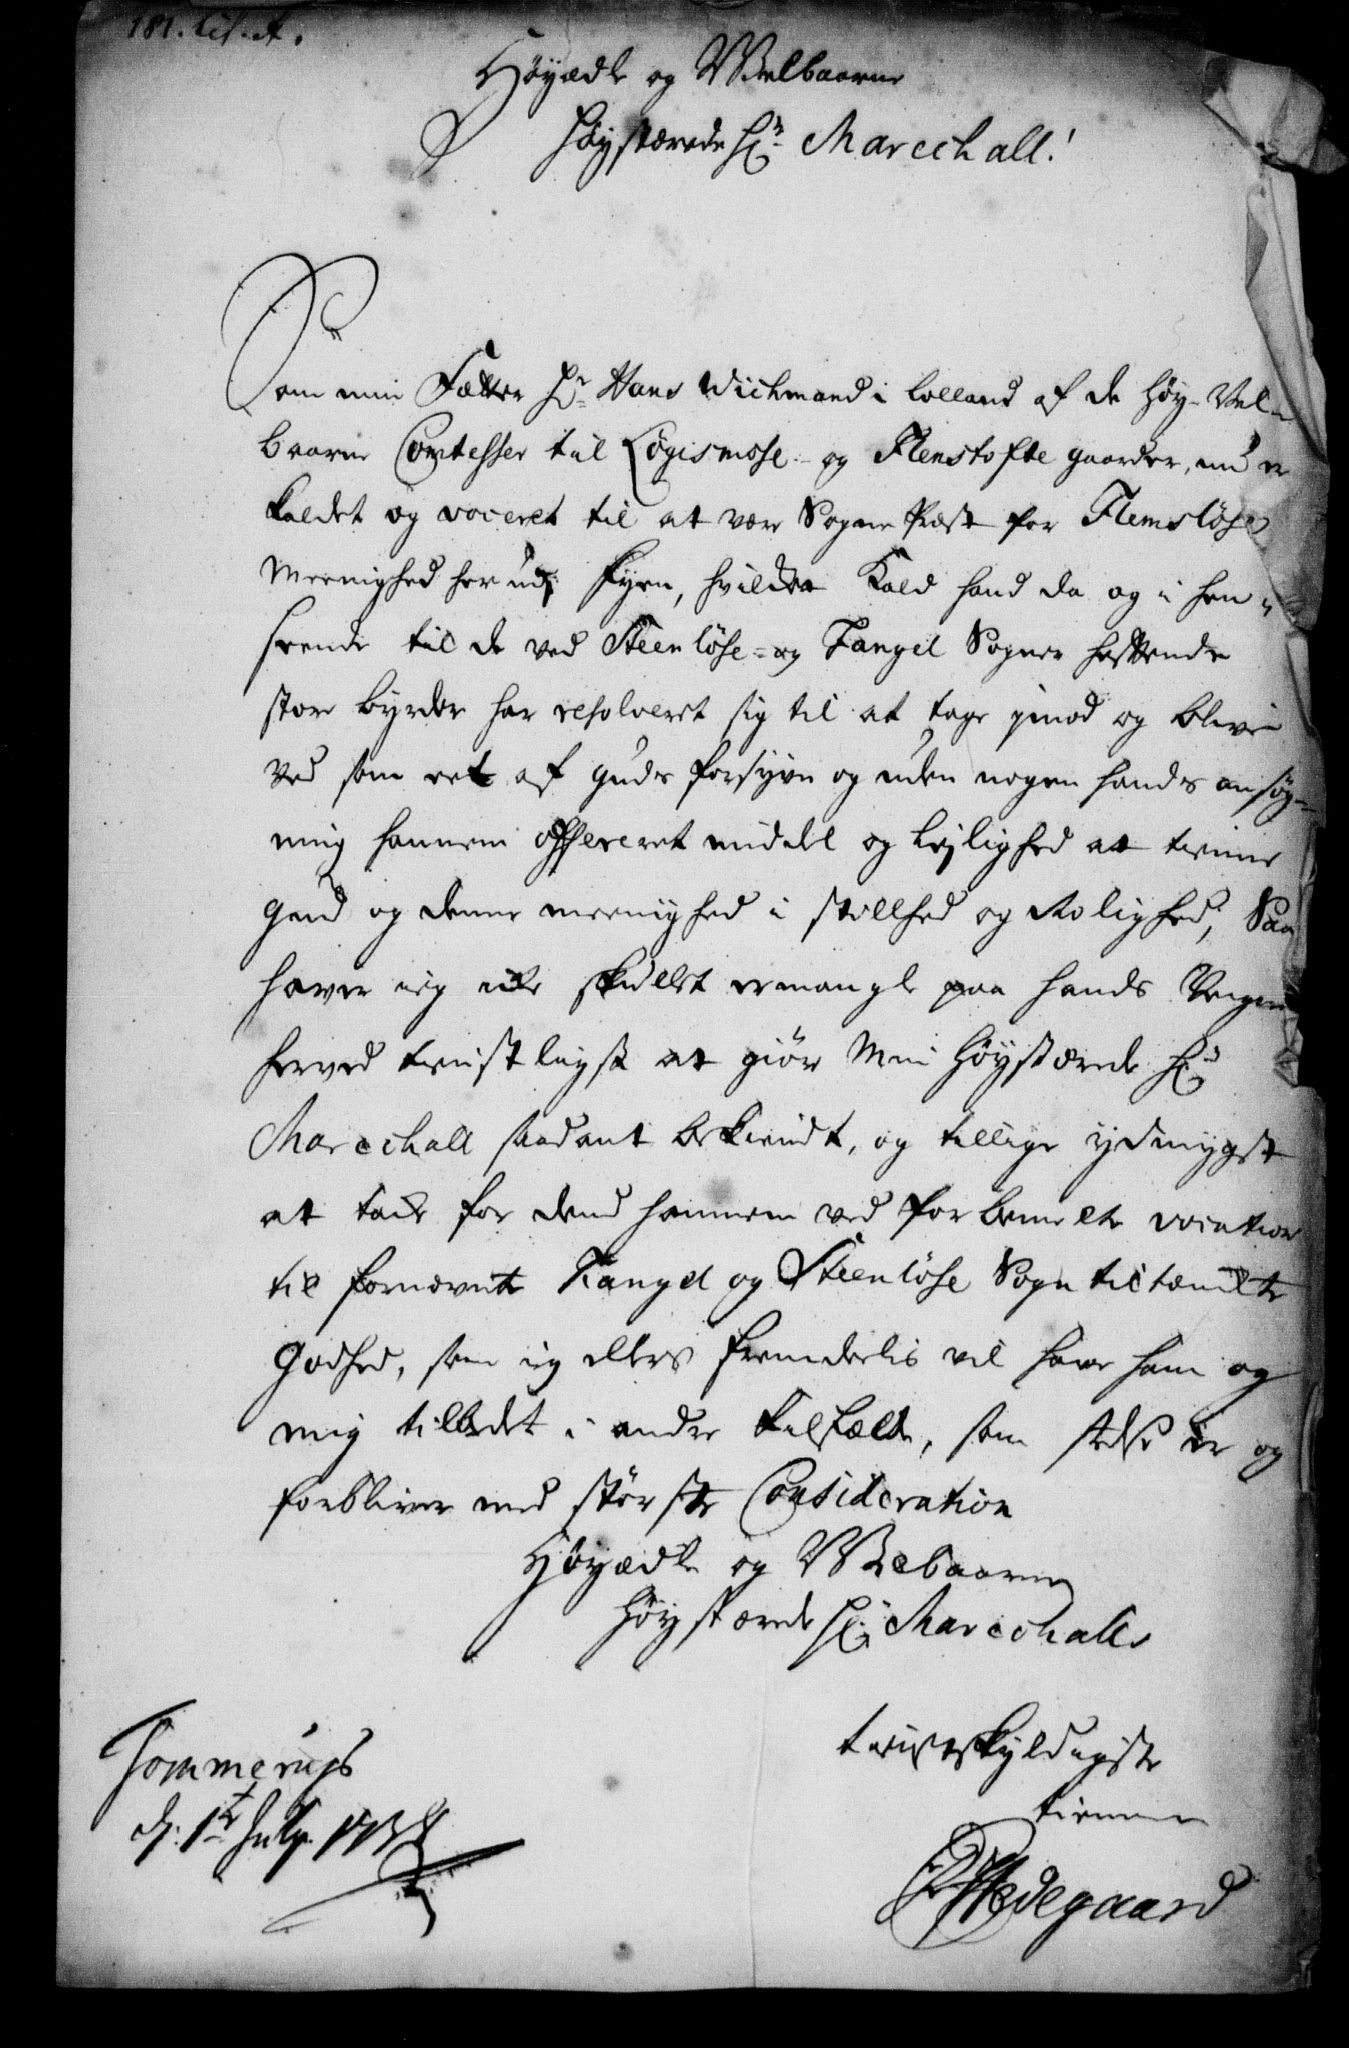 181. Lit. A.
Höyædle og Welbaarne
Höystærede Hr. Marechall!
Som min Fætter Hr. Hans Wichmand i Lolland af de Höy-Vel-
baarne Comtesser til Løgismose- og Flenstofte gaarder, nu er
kaldet og voceret til at være Sogne Præst for Flemslöse
Meenighed her udj Fyen, hvilket Kald hand da og i hen-
seende til de ved Steenlöse- og Fangel Sogner heftende
store byrder har resolveret sig til at tage imod og blive
ved som ret af Guds forsyvn og uden nogen hands ansøg-
ning hannem offereret middel og Lejlighed at tienne
Gud og denne meenighed i stillhed og Rolighed; Saa
haver ieg icke skullet ermangle paa hands Vegne
herved tienstligst at giöre Min Höystærede Hr.
Marechall saadant bekiendt, og tillige ydmygst
at tacke for dend hannem ved forbemelte vocation
til fornævnte Fangel og Steenlöse Sogn tiltænckte
Godhed, som ieg ellers fremdeelis vil have ham og
mig tilbedet i andre tilfælde, som stedse er og
forbliver med störste Consideration
Höyædle og Welbaarne
Höystærede Hr. Marechalls
Tommerups
d. 1te July
tienstskyldigste
tienner
Hedegaard